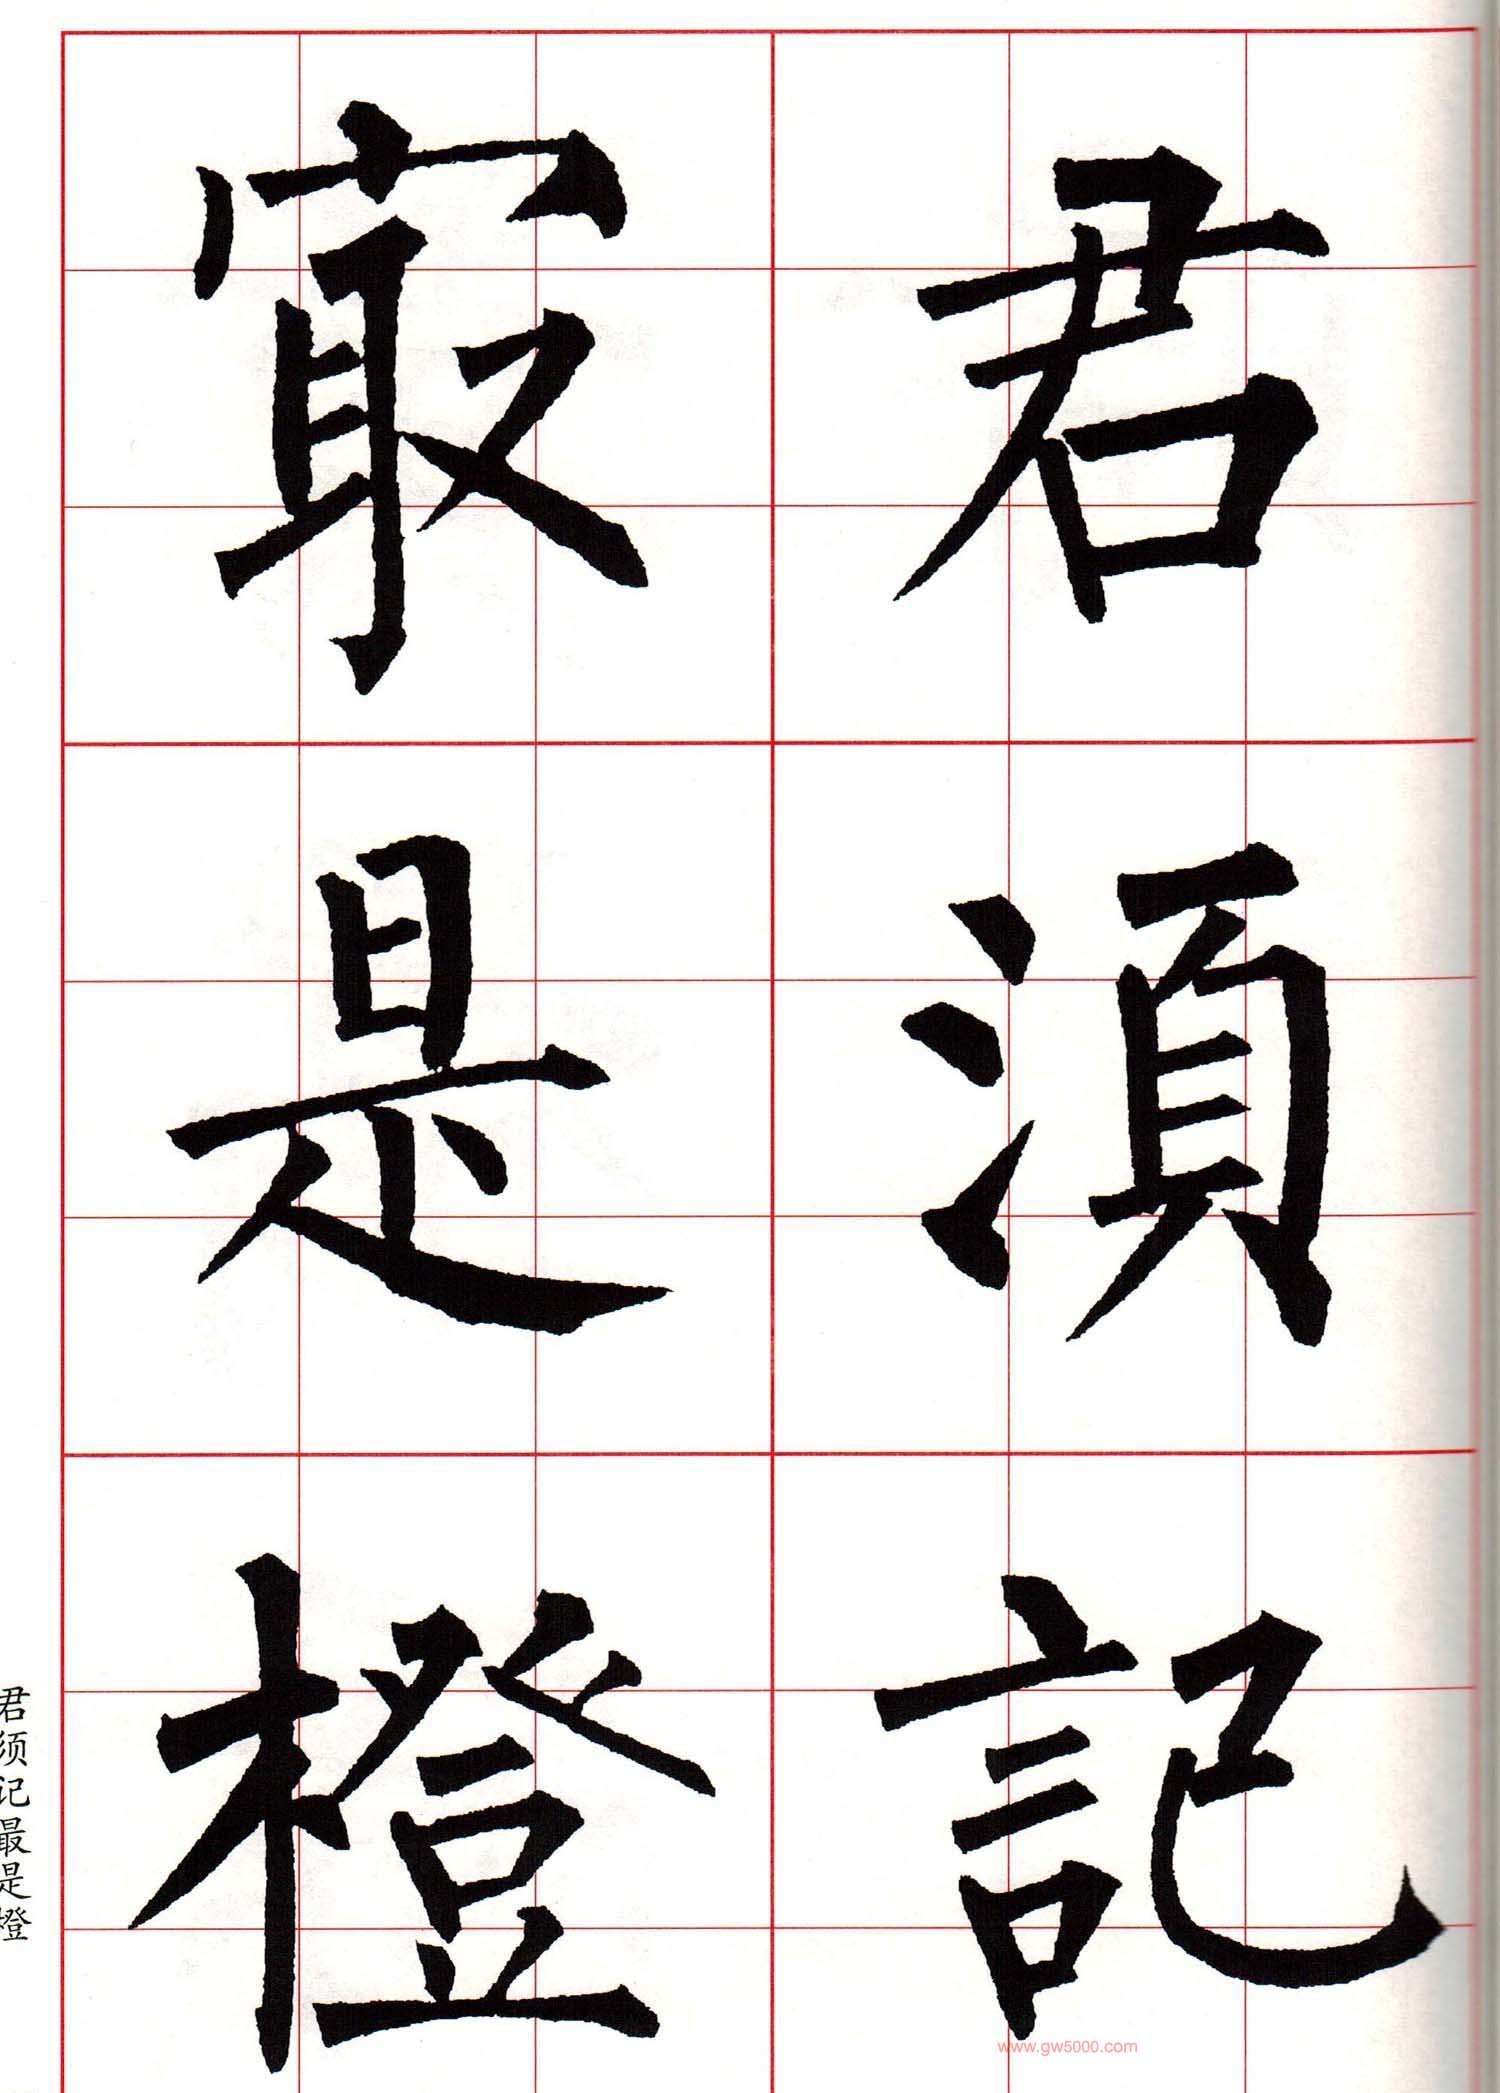 君須記
冣是橙
君须记最是橙
www.gw5000.com